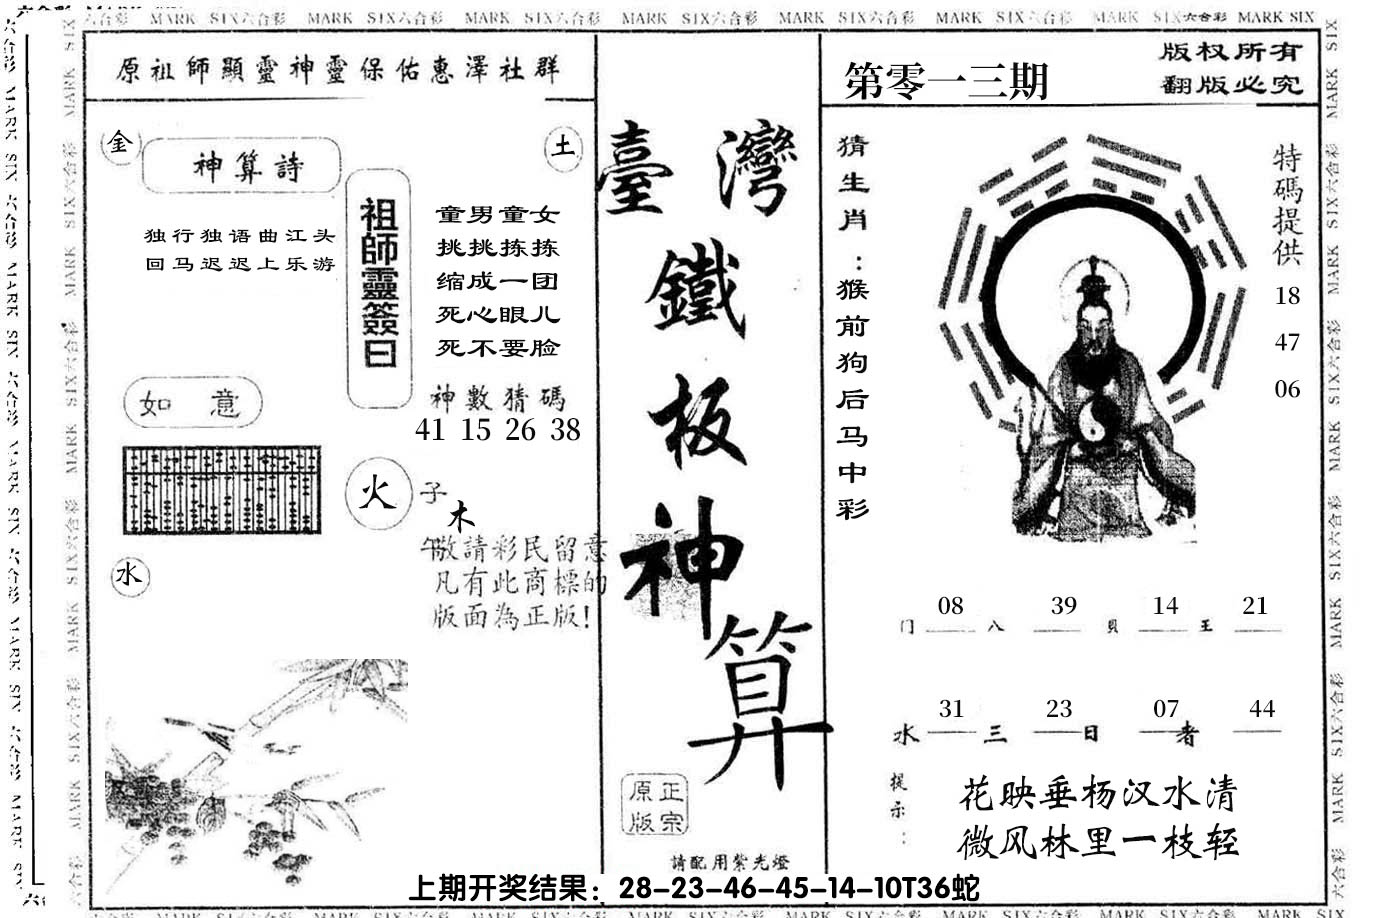 MARK SIX六合彩 MARK SIX六合彩 MARK SIX六合彩 MARK SIX六合彩 MARK SIX六合彩 MARK SIX六合彩 MARK SIX六合彩 MARK SIX
原祖師顯靈神靈保佑惠澤社群
金
神算詩
土
独行独语曲江头
回马迟迟上乐游
祖師靈簽曰
童男童女
挑挑拣拣
缩成一团
死心眼儿
死不要脸
神數猜碼
41 15 26 38
如意
火
子
木
午
水
敬請彩民留意
凡有此商標的
版面為正版!
臺灣
鐵
板
神
算
正宗
原版
請配用紫光燈
第零一三期
版权所有
翻版必究
猜生肖:猴前狗后马中彩
特碼提供
18
47
06
门 08 八 39 貝 14 王 21
水 31 三 23 日 07 者 44
提示:
花映垂杨汉水清
微风林里一枝轻
上期开奖结果：28-23-46-45-14-10T36蛇